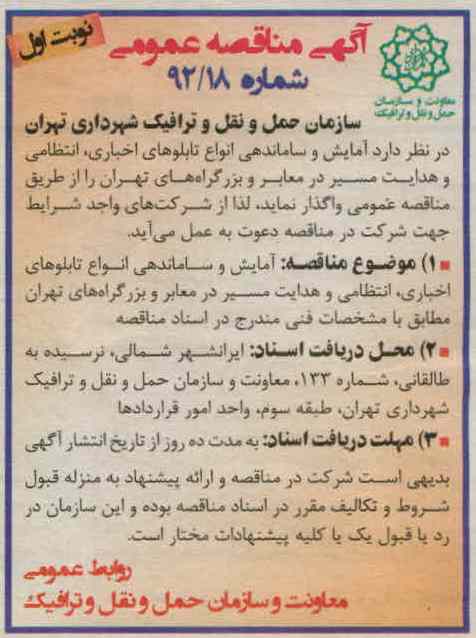 نوبت اول
آگهی مناقصه عمومی
شماره ۹۲/۱۸
معاونت و سازمان
حمل و نقل و ترافیک
سازمان حمل و نقل و ترافیک شهرداری تهران
در نظر دارد آمایش و ساماندهی انواع تابلوهای اخباری، انتظامی
و هدایت مسیر در معابر و بزرگراه‌های تهران را از طریق
مناقصه عمومی واگذار نماید، لذا از شرکت‌های واجد شرایط
جهت شرکت در مناقصه دعوت به عمل می‌آید.
۱) موضوع مناقصه: آمایش و ساماندهی انواع تابلوهای
اخباری، انتظامی و هدایت مسیر در معابر و بزرگراه‌های تهران
مطابق با مشخصات فنی مندرج در اسناد مناقصه
۲) محل دریافت اسناد: ایرانشهر شمالی، نرسیده به
طالقانی، شماره ۱۳۳، معاونت و سازمان حمل و نقل و ترافیک
شهرداری تهران، طبقه سوم، واحد امور قراردادها
۳) مهلت دریافت اسناد: به مدت ده روز از تاریخ انتشار آگهی
بدیهی است شرکت در مناقصه و ارائه پیشنهاد به منزله قبول
شروط و تکالیف مقرر در اسناد مناقصه بوده و این سازمان در
رد یا قبول یک یا کلیه پیشنهادات مختار است.
روابط عمومی
معاونت و سازمان حمل و نقل و ترافیک